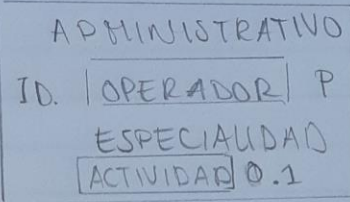 ADMINISTRATIVO
ID. OPERADOR P
ESPECIALIDAD
ACTIVIDAD 0.1